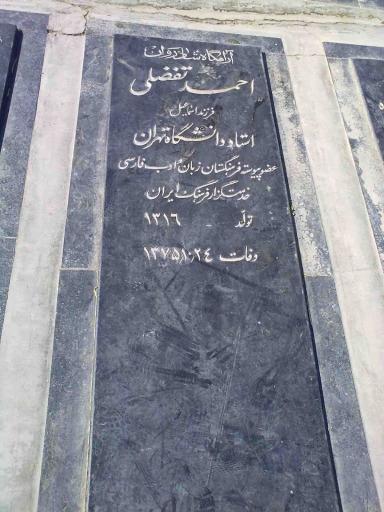 آرامگاه شادروان
احمد تفضلی
فرزند اسماعیل
استاد دانشگاه تهران
عضو پیوسته فرهنگستان زبان و ادب فارسی
خدمتگزار فرهنگ ایران
تولد ۱۳۱۶
وفات ۱۳۷۵/۱۰/۲۴